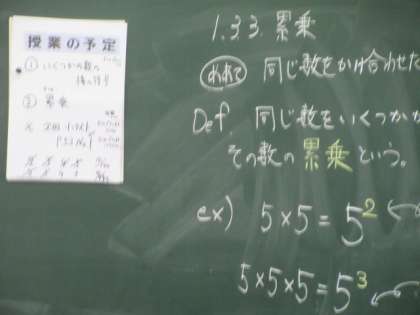 授業の予定
① いくつかの数の
積の符号
② 累乗
1.3.3. 累乗
めあて 同じ数をかけ合わせた
Def 同じ数をいくつか
その数の累乗という。
ex) 5×5=5²
5×5×5=5³